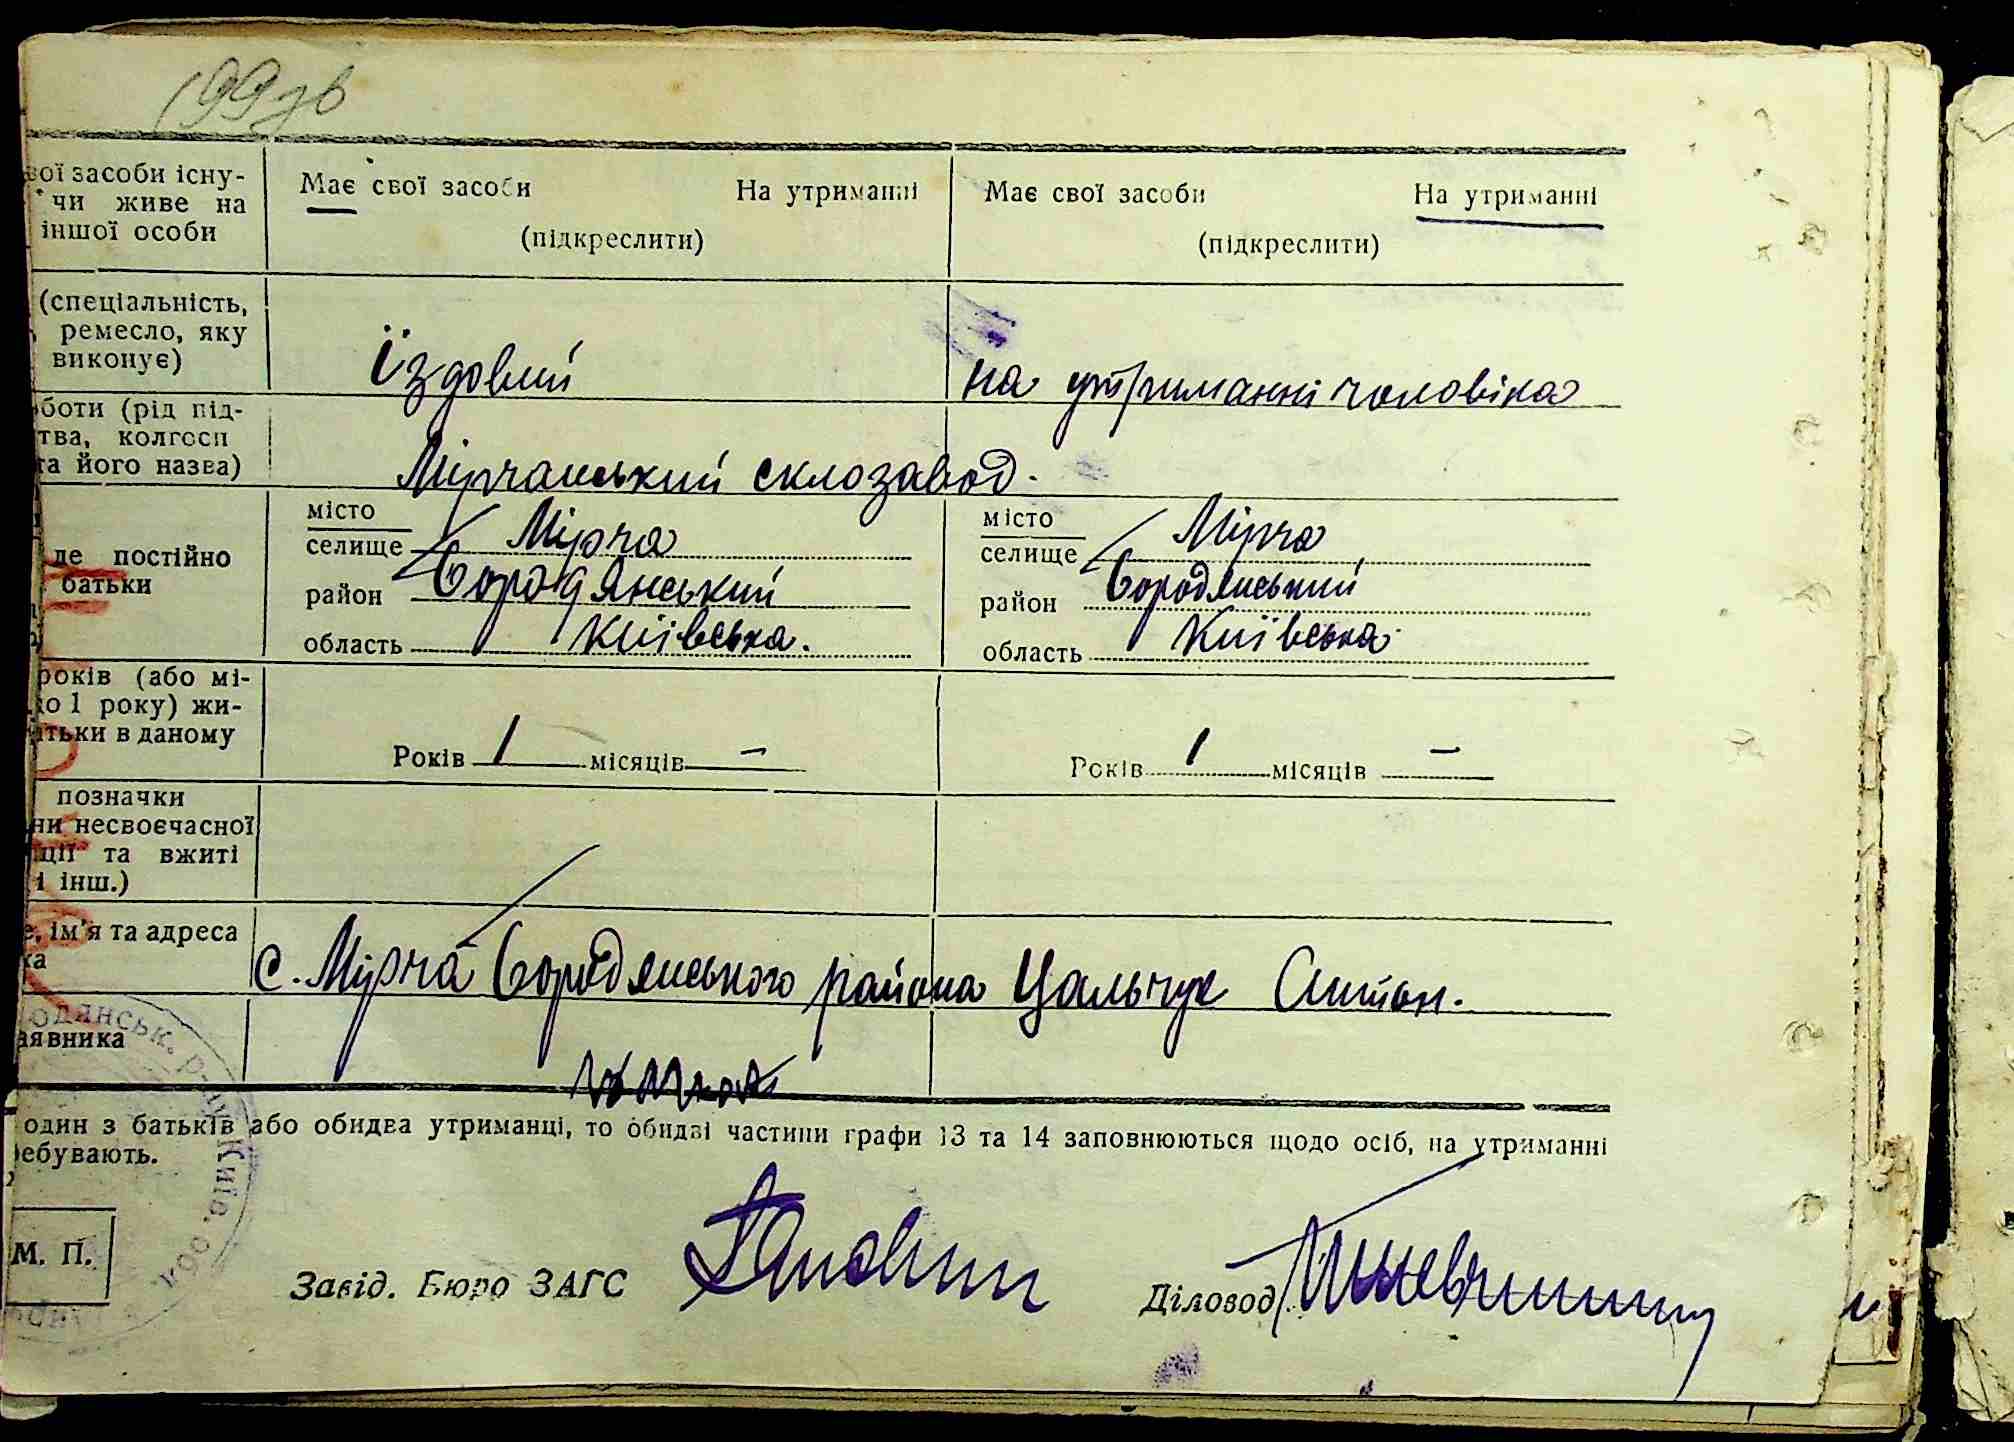 199зв
вої засоби існу-
чи живе на
іншої особи
Має свої засоби На утриманні
(підкреслити)
Має свої засоби На утриманні
(підкреслити)
(спеціальність,
ремесло, яку
виконує)
їздовий
на утриманні чоловіка
боти (рід під-
тва, колгосп
та його назва)
Мірчанський склозавод.
де постійно
батьки
місто
селище Мірча
район Бородянський
область Київська.
місто
селище Мірча
район Бородянський
область Київська.
років (або мі-
до 1 року) жи-
атьки в даному
Років 1 місяців —
Років 1 місяців —
позначки
ни несвоєчасної
ції та вжиті
і інш.)
е, ім'я та адреса
ка
с. Мірча Бородянського района Цальчук Антон.
аявника
один з батьків або обидва утриманці, то обидві частини графи 13 та 14 заповнюються щодо осіб, на утриманні
ребувають.
одянськ. р-
Київ. обл.
М. П.
Завід. Бюро ЗАГС
Діловод